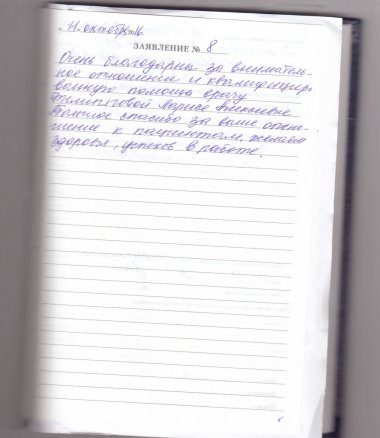 октября 16.
ЗАЯВЛЕНИЕ № 8
Очень благодарны за вниматель-
ное отношение и квалифициро-
ванную помощь врачу
Ларисе Алексеевне
Большое спасибо за ваше отно-
шение к пациентам, желаем
здоровья, успехов в работе.